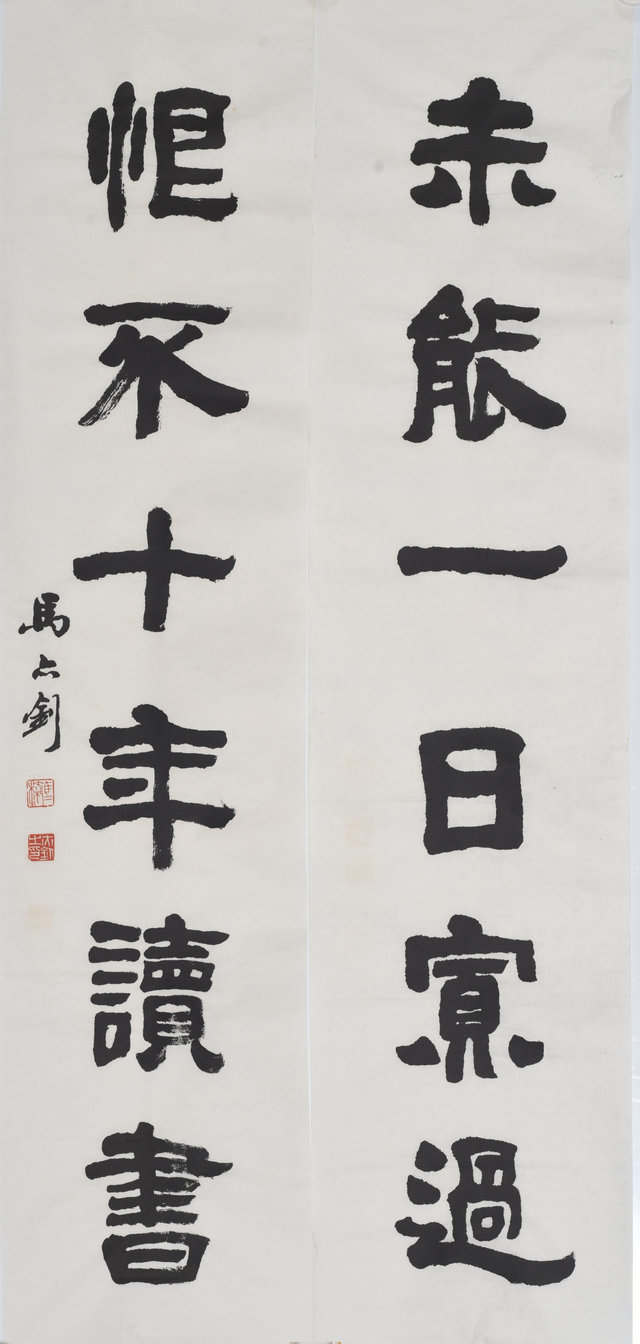 未能一日寡過
恨不十年讀書
馬